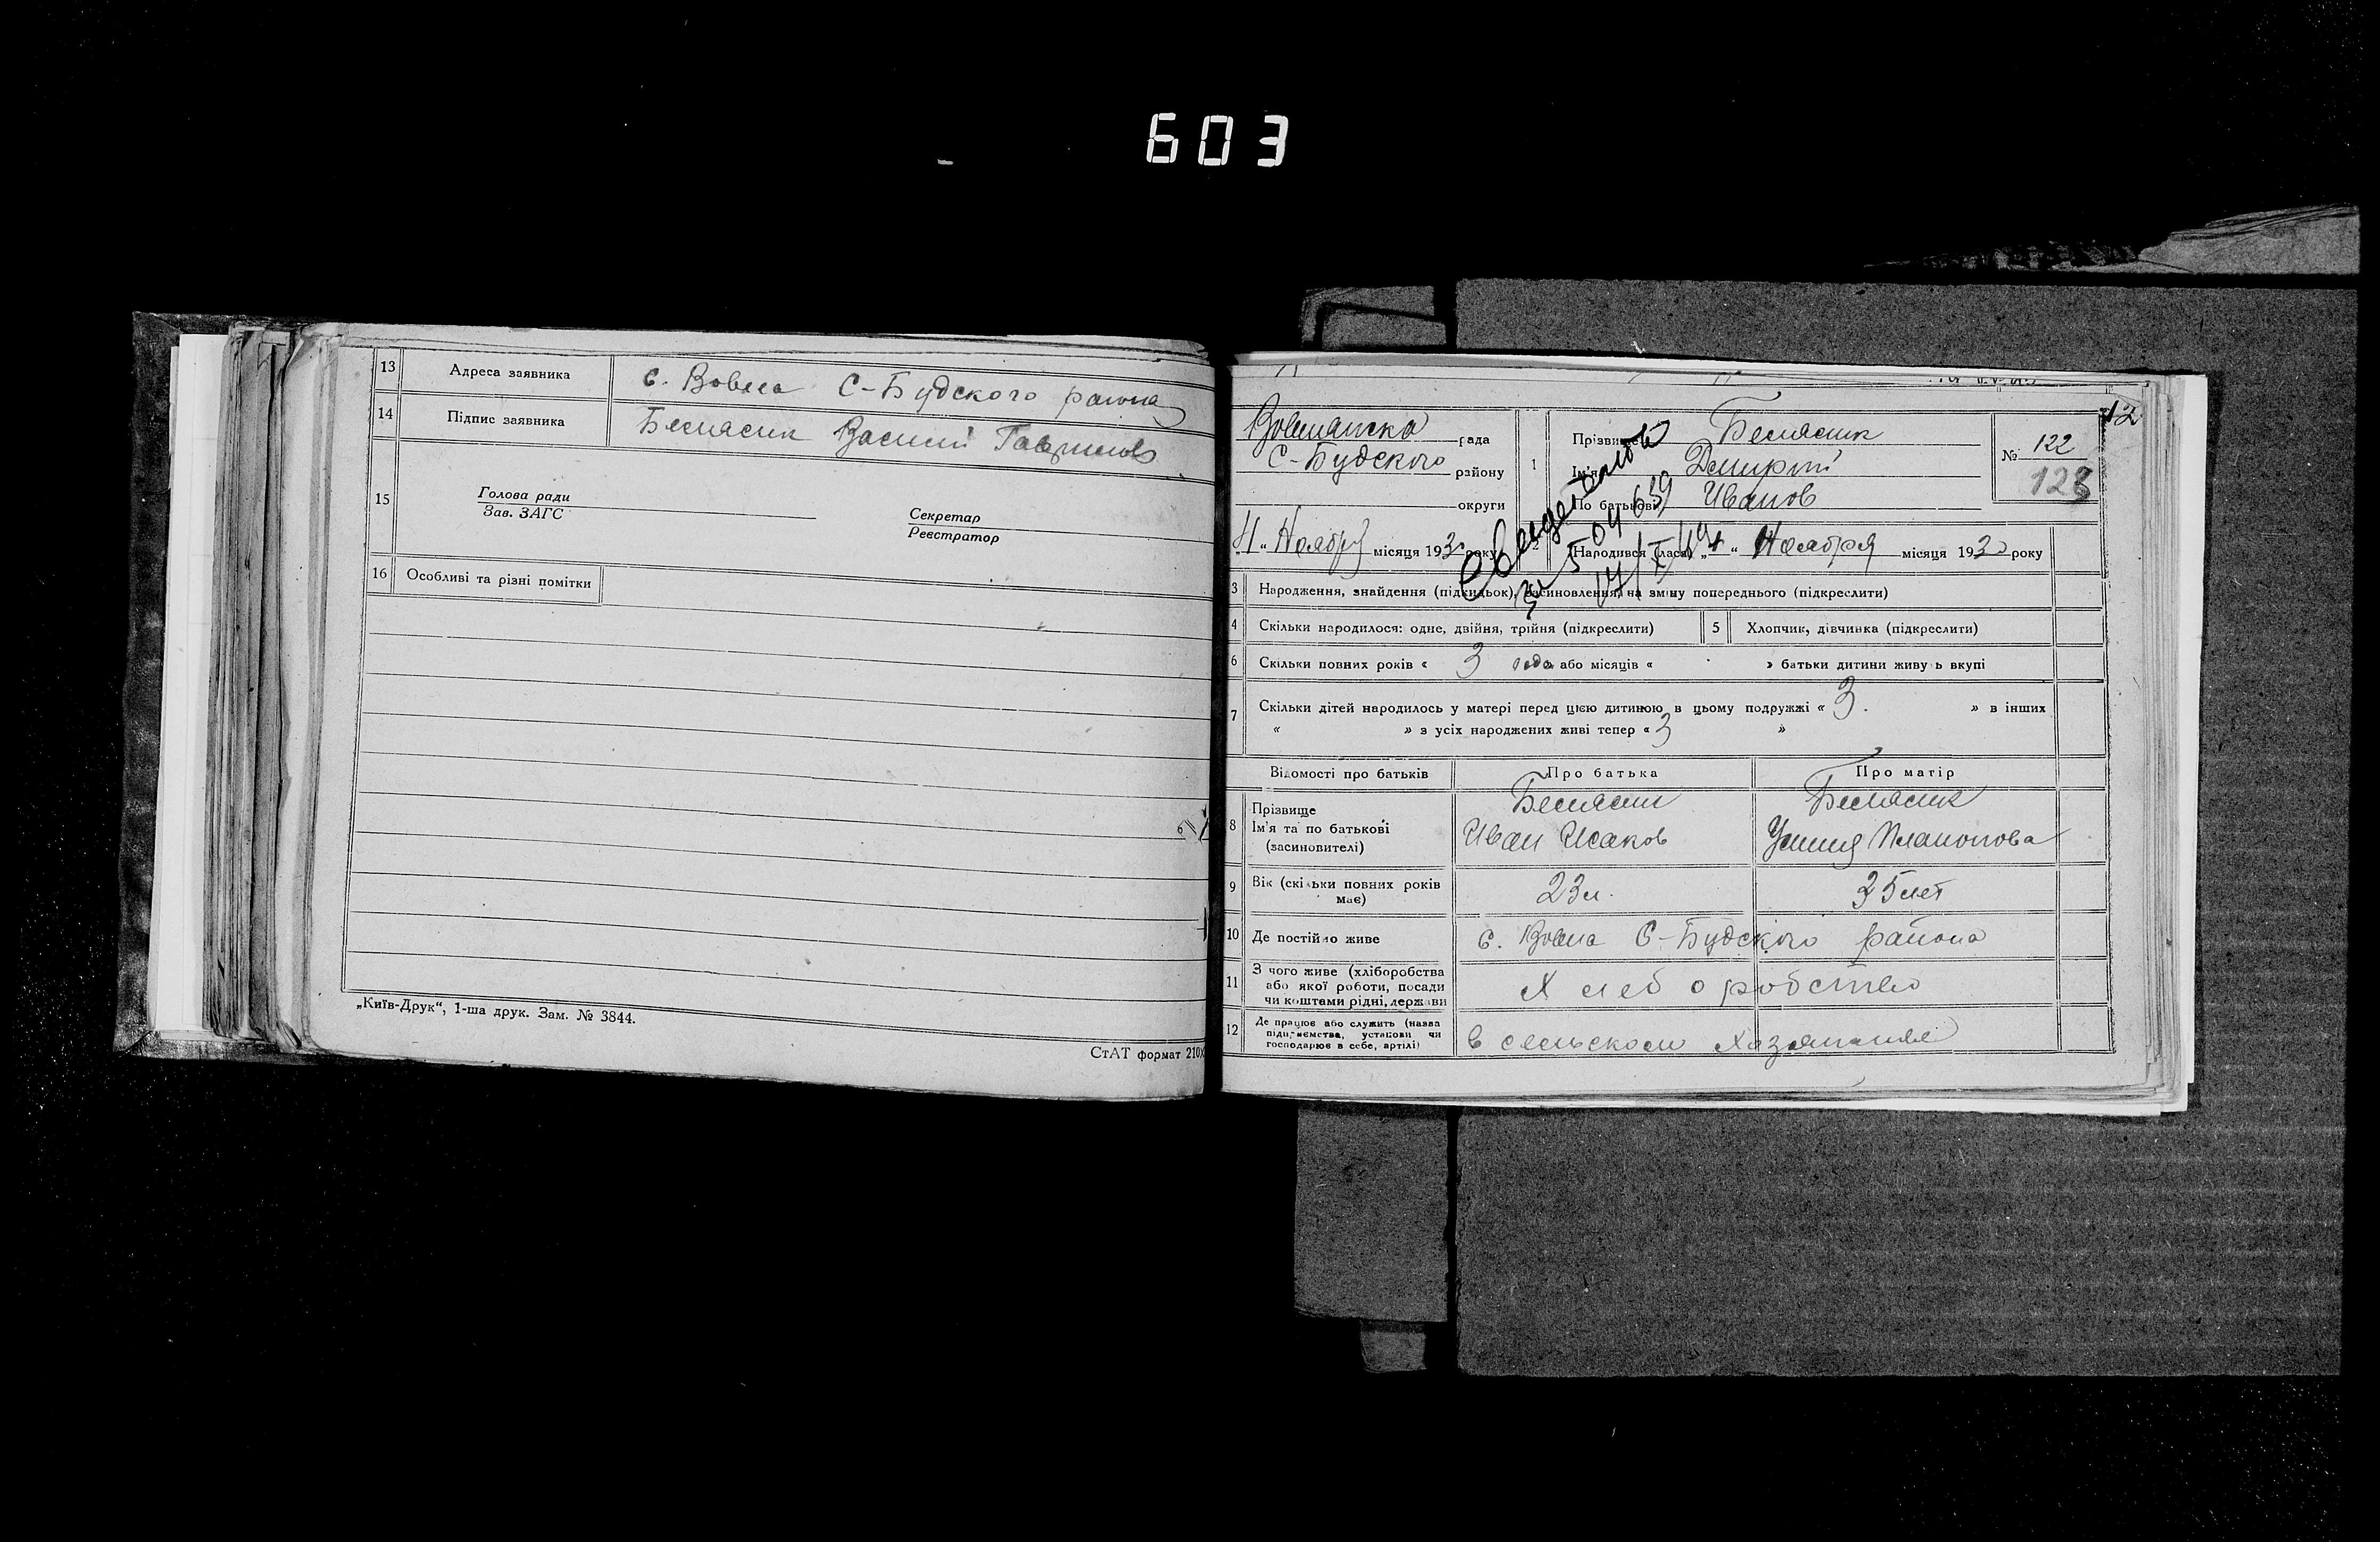 603
13 Адреса заявника с. Вовна С-Будского района
14 Підпис заявника Беспасик Василий Гаврилов
15 Голова ради
Зав. ЗАГС
Секретар
Реєстратор
16 Особливі та різні помітки
„Київ-Друк“, 1-ша друк. Зам. № 3844.
СтАТ формат 210
12
рада
С-Будского району
округи
1 Прізвище Беспасик
Ім'я Дмитрий
По батькові Иванов
№ 122
123
4 " Ноября місяця 193 року
2 Народився (лася) „ 4 " Ноября місяця 193 року
за 504639
3 Народження, знайдення (підкидьок), засиновлення, на зміну попереднього (підкреслити)
4 Скільки народилося: одне, двійня, трійня (підкреслити) 5 Хлопчик, дівчинка (підкреслити)
6 Скільки повних років « 3 года або місяців « » батьки дитини живуть вкупі
7 Скільки дітей народилось у матері перед цією дитиною в цьому подружжі « 3 . » в інших
« » з усіх народжених живі тепер « 3 »
Відомості про батьків Про батька Про матір
8 Прізвище Беспасик Беспасик
Ім'я та по батькові Иван Исаков
(засиновителі)
9 Вік (скільки повних років має) 23 л. 25 лет
10 Де постійно живе с. Вовна С-Будского района
11 З чого живе (хліборобства
або якої роботи, посади Хлеборобство
чи коштами рідні, держави
12 Де працює або служить (назва
підприємства, установи чи в сельском
господарює в себе, артілі)